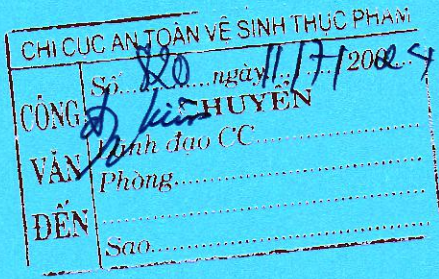 CHI CỤC AN TOÀN VỆ SINH THỰC PHẨM
CÔNG VĂN ĐẾN
Số: 820 ngày 11/7/2024
CHUYỂN
Lãnh đạo CC
Phòng
Sao